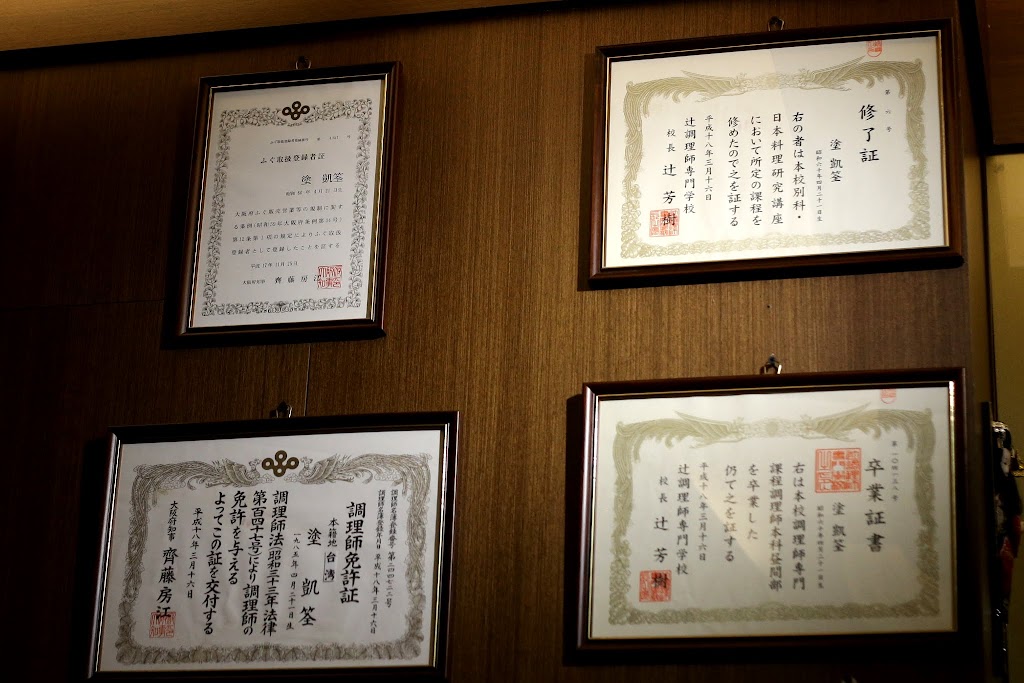 ふぐ取扱登録者証
塗 凱筌
大阪府ふぐ販売営業等の規制に関す
る条例(昭和
により ふぐ取扱
登録者として登録したことを証する
平成17年11月
大阪府知事 齊藤房江
修了証
塗 凱筌
昭和六十年四月二十一日生
右の者は本校別科・
日本料理研究講座
において所定の課程を
修めたので之を証する
平成十八年三月十六日
辻調理師専門学校
校長 辻 芳樹
調理師名簿登録番号 第
調理師名簿登録年月日 平成十八年三月十六日
調理師免許証
本籍地 台湾
塗 凱筌
一九八五年四月二十一日生
調理師法(昭和三十三年法律
第百四十七号)により調理師の
免許を与える
よってこの証を交付する
平成十八年三月十六日
大阪府知事 齊藤房江
卒業証書
塗 凱筌
昭和六十年四月二十一日生
右は本校調理師専門
課程調理師本科昼間部
を卒業した
仍て之を証する
平成十八年三月十六日
辻調理師専門学校
校長 辻 芳樹